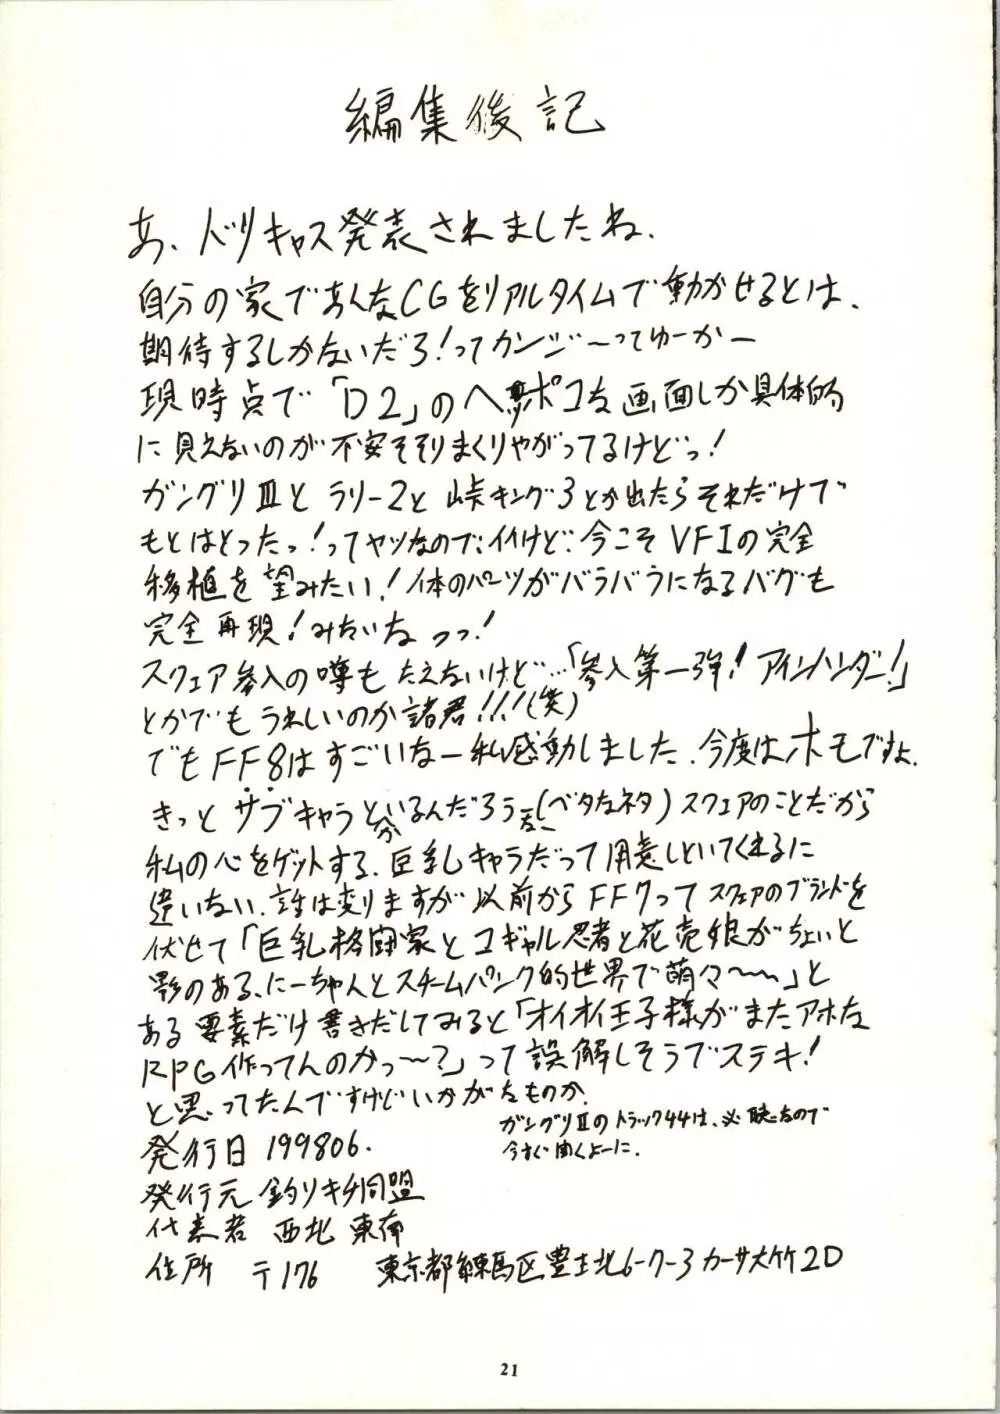 編集後記
あ、ドリキャス発表されましたね、
自分の家であんなCGをリアルタイムで動かせるとは、
期待するしかないだろ！ってカンジ〜ってゆーかー
現時点で「D2」のヘッポコな画面しか具体的
に見えないのが不安そそりまくりやがってるけどっ！
ガングリⅢとラリー2と峠キング3とか出たらそれだけで
もとはとったっ！ってヤツなので、イイけど、今こそVF1の完全
移植を望みたい！体のパーツがバラバラになるバグも
完全再現！みたいなっっ！
スクェア参入の噂もたえないけど…「参入第一弾！アインハンダー！」
とかでもうれしいのか諸君！！！(笑)
でもFF8はすごいなー私感動しました、今度はホモですよ、
きっとサブキャラと分いるんだろうな(ベタなネタ)スクェアのことだから
私の心をゲットする、巨乳キャラだって用意しといてくれるに
違いない、誰は変りますが以前からFF7ってスクェアのブランドを
伏せて「巨乳格闘家とコギャル忍者と花売娘がちょいと
影のある、にーちゃんとスチームパンク的世界で萌々〜〜」と
ある要素だけ書きだしてみると「オイオイ王子様がまたアホな
RPG作ってんのかっ〜？」って誤解しそうでステキ！
と思ってたんですけどいかがなものか、
ガングリⅡのトラック44は、必聴なので
今すぐ聞くよーに、
発行日 199806.
発行元 釣りキチ同盟
代表者 西北 東南
住所 〒176 東京都練馬区豊玉北6-7-3カーサ大竹2D
21